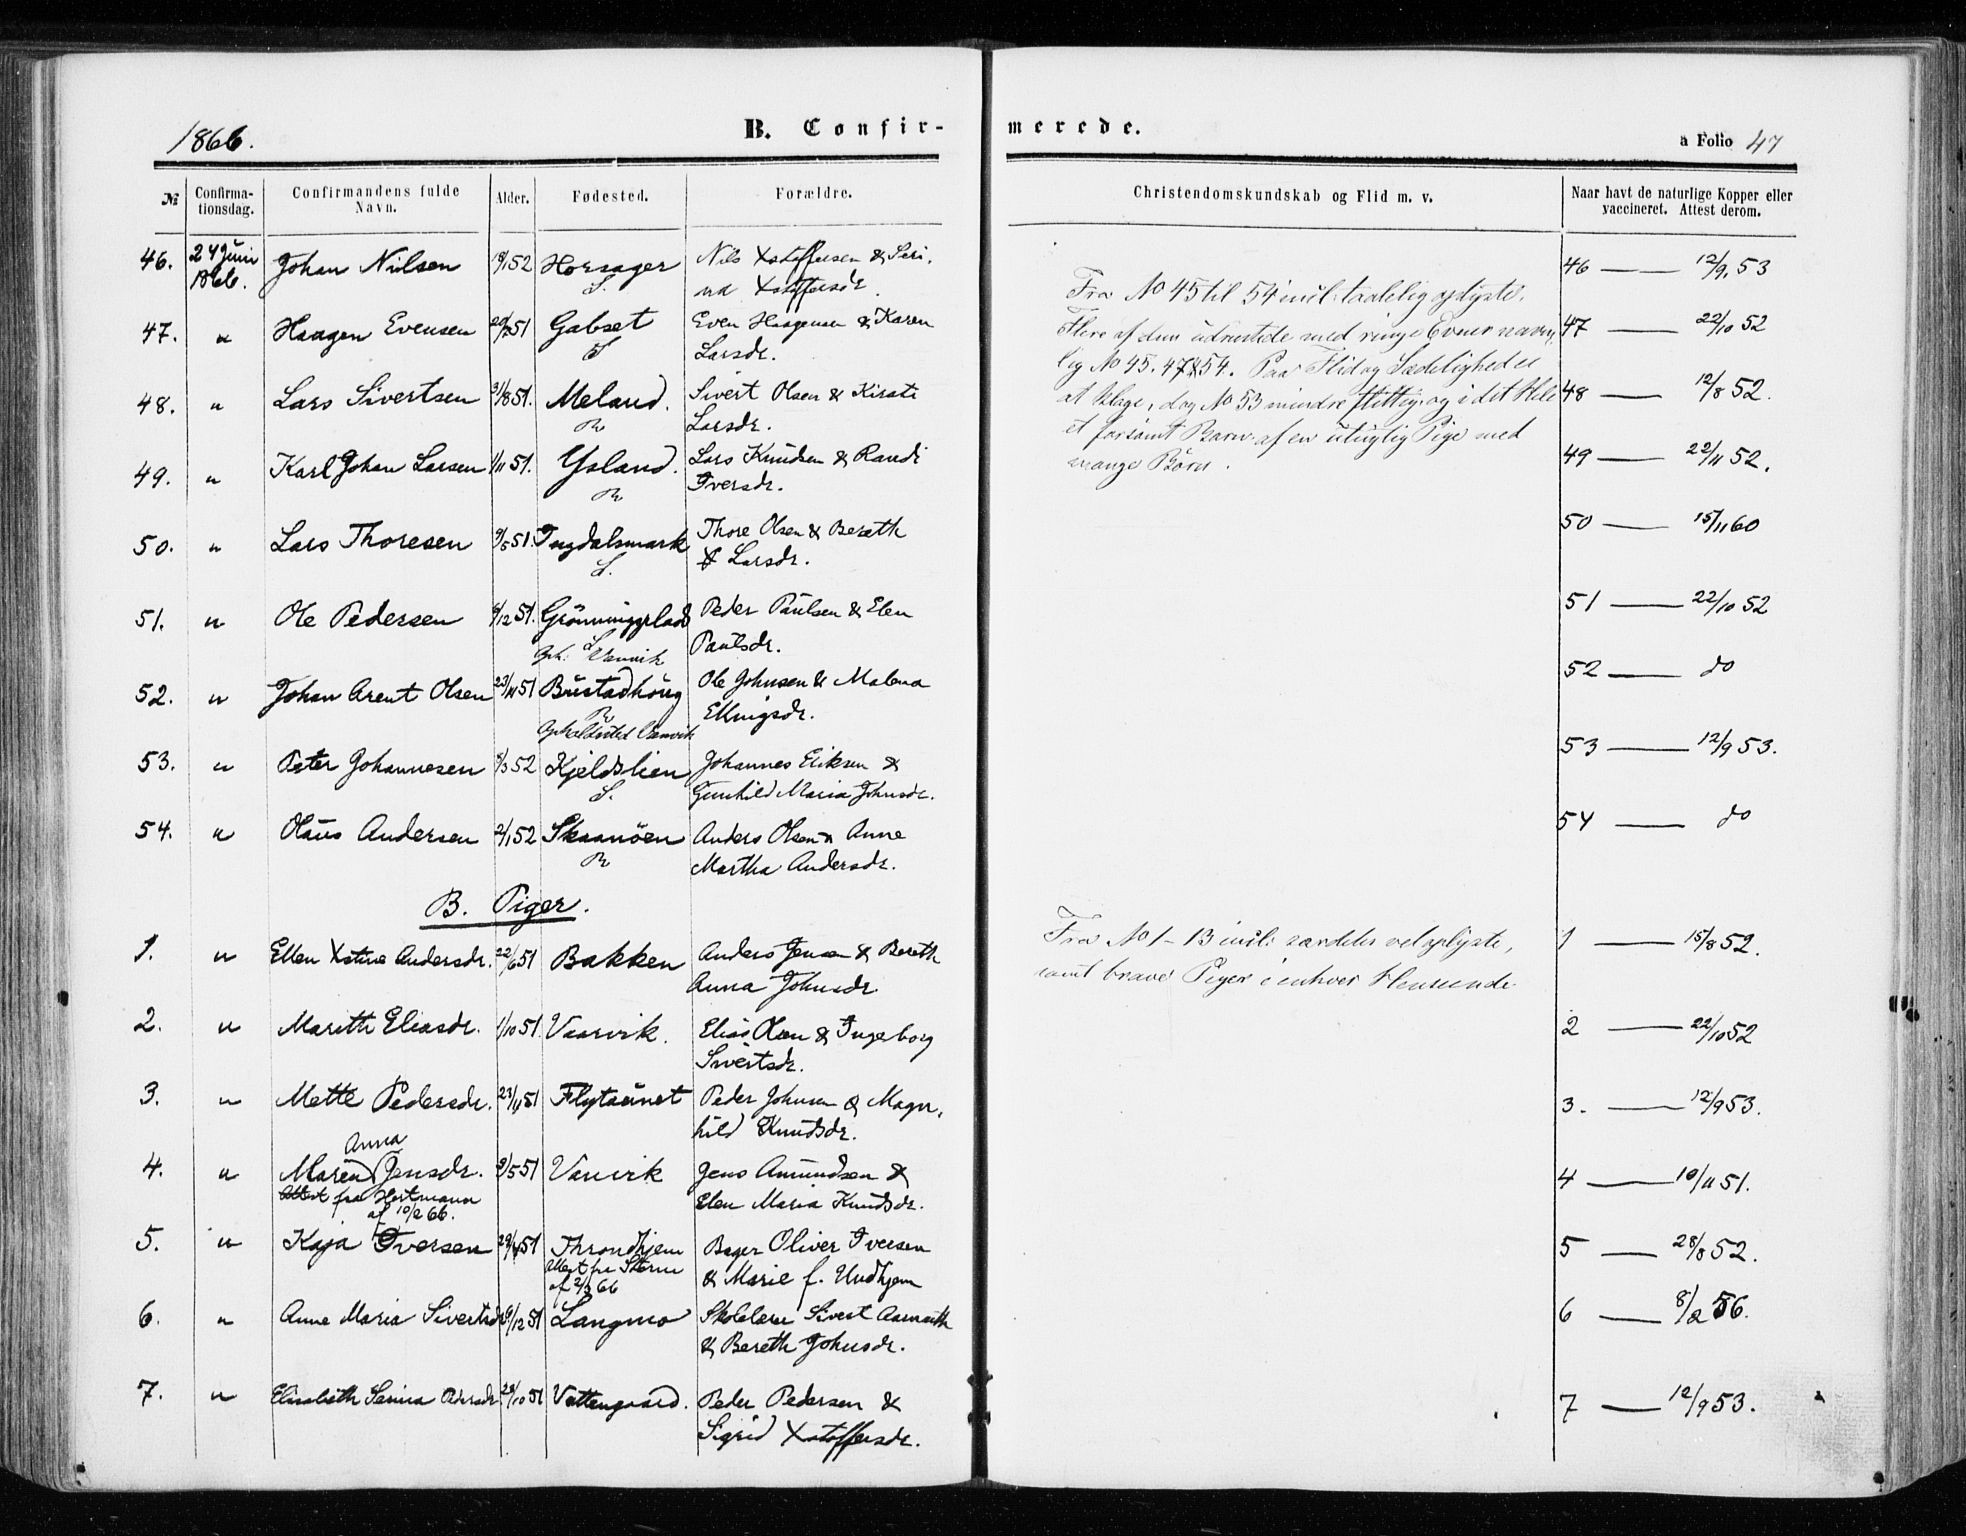 1866.
B. Confir-
merede.
a Folio 47
№
Confirma-
tionsdag.
Confirmandens fulde
Navn.
Alder.
Fødested.
Forældre.
Christendomskundskab og Flid m. v.
Naar havt de naturlige Kopper eller
vaccineret. Attest derom.
46. 24 Juni Johan Nilsen 52 Horsager Nils Xstoffersen & Seri,
1866. S. na Xstoffersdr.
47. " Haagen Evensen 51 Gabset Even Haagensen & Karen
S Larsdr.
48. " Lars Sivertsen 31/8 51. Meland. Sivert Olsen & Kirsti
R Larsdr.
49. " Karl Johan Larsen 1/11 51. Ysland. Lars Knudsen & Randi
R Iversdr.
50. " Lars Thoresen 9/5 51. Ingdalsmark Thore Olsen & Bereth
S. Larsdr.
51. " Ole Pedersen 6/12 51. Grönningsplads Peder Paulsen & Elen
Oph: Vanvik Paulsdr.
52. " Johan Arent Olsen 23/11 51 Bustadhöug Ole Johnsen & Malena
R Ellingsdr.
Vanvik
53. " Peter Johannesen 8/3 52 Kjeldslien Johannes Eriksen &
S. Gunhild Maria Johnsdr.
54. " Olaus Andersen 2/1 52 Skaanöen Anders Olsen & Anne
R Martha Andersdr.
B. Piger.
1. " Ellen Xstine Andersdr. 22/6 51 Bakken Anders Jensen & Bereth
Anna Johnsdr
2. " Marith Eliasdr. 1/10 51. Vaarvik. Elias Olsen & Ingeborg
Sivertsdr.
3. " Mette Pedersdr. 23/11 51 Flytaunet Peder Johnsen & Magn,
hild Knudsdr.
Anna
4. " Maren Jensdr. 2/5 51 Vanvik Jens Amundsen &
Attest fra Hartmann Elen Maria Knudsdr.
af 10/2 66.
5. " Kaja Iversen 29/4 51 Throndhjem Bager Oliver Iversen
Attest fra & Marie f. Undhjem
af 2/3 66
6. " Anne Maria Sivertsdr 9/12 51 Langmo Skolelærer Sivert
& Bereth Johnsdr.
7. " Elisabeth Serina Pedersdr 28/10 51 Vattengaard. Peder Pedersen &
Sigrid Xstoffersdr.
Fra No 45 til 54 incl: taalelig oplyste.
Flere af dem udrustede med ringe Evner navn,
lig No 45. 47 & 54. Paa Flid og Sædelighed ei
at klage, dog No 53 mindre flittig og i det Hele
et forsömt Barn af en utugtig Pige med
mange Börn.
Fra No 1 - 13 incl: særdeles vel oplyste,
samt brave Piger i enhver Henseende
46 — 12/9 53
47 — 22/10 52
48 — 12/8 52.
49 — 22/11 52.
50 — 15/11 60
51 — 22/10 52
52 — do
53 — 12/9 53.
54 — do
1 — 15/8 52.
2 — 22/10 52
3. — 12/9 53.
4 — 10/11 51.
5 — 28/8 52.
6 — 8/2 56.
7 — 12/9 53.